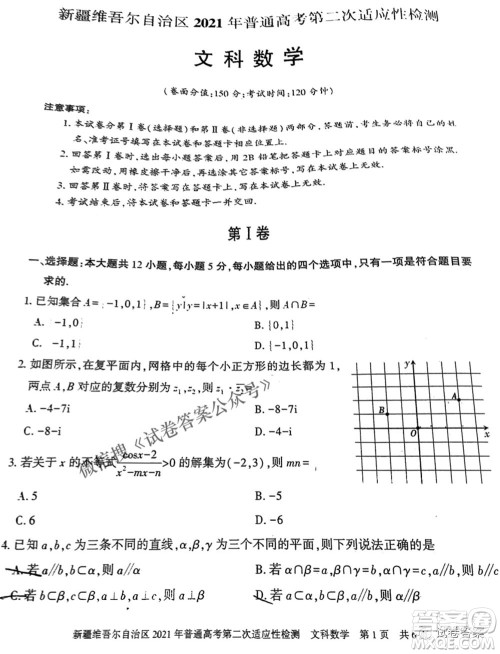 新疆维吾尔自治区2021年普通高考第二次适应性检测
文科数学
(卷面分值:150分;考试时间:120分钟)
注意事项:
1.本试卷分第Ⅰ卷(选择题)和第Ⅱ卷(非选择题)两部分,答卷前,考生务必将自己的姓
名、准考证号填写在答题卡相应位置上.
2.回答第Ⅰ卷时,选出每小题答案后,用2B铅笔把答题卡上对应题目的答案标号涂黑.
如需改动,用橡皮擦干净后,再选涂其它答案标号.
3.回答第Ⅱ卷时,将答案写在答题卡上,
4.考试结束后,将本试卷和答题卡一并交回.
第Ⅰ卷
一、选择题:本大题共12小题,每小题5分,每小题给出的四个选项中,只有一项是符合题目要
求的.
1.已知集合A={-1,0,1},B={y|y=|x+1|,x∈A},则A∩B=
A.{-1,0}
B.{0,1}
C.{-1,1}
D.{1}
2.如图所示,在复平面内,网格中的每个小正方形的边长都为1,
两点A,B对应的复数分别为z₁,z₂,则z₁·z₂=
A.-4-7i
B.-4-i
C.-8-i
D.-8-7i
y
A
B
O
x
3.若关于x的不等式 (cosx-2)/(x²-mx-n)>0的解集为(-2,3),则mn=
A.5
B.-5
C.6
D.-6
4.已知a,b,c为三条不同的直线,α,β,γ为三个不同的平面,则下列说法正确的是
A.若a//b,b⊂α,则a//α
B.若α∩β=a,β∩γ=b,α∩γ=c,则a//b
C.若b⊂β,c⊂β,a⊥b,a⊥c,则a⊥β
D.若a⊂α,b⊂β,a//b,则α//β
微信搜《试卷答案公众号》
新疆维吾尔自治区2021年普通高考第二次适应性检测 文科数学 第1页 共6
试卷答案